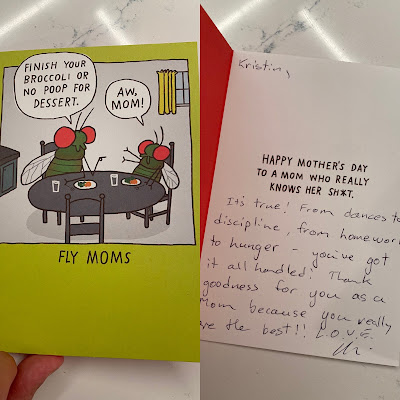 FINISH YOUR
BROCCOLI OR
NO POOP FOR
DESSERT.
AW,
MOM!
FLY MOMS
Kristin,
HAPPY MOTHER'S DAY
TO A MOM WHO REALLY
KNOWS HER SH*T.
It's true! From dances to
discipline, from homework
to hunger - you've got
it all handled! Thank
goodness for you as a
Mom because you really
are the best!! L.O.V.E.